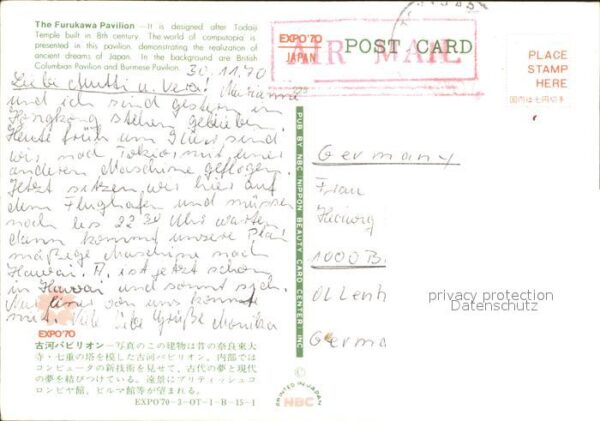 The Furukawa Pavilion — It is designed after Todaiji
Temple built in 8th century. The world of computopia is
presented in this pavilion, demonstrating the realization of
ancient dreams of Japan. In the background are British
Columbian Pavilion and Burmese Pavilion.
30.11.70
Liebe Mutti u. Vera! Marianne
und ich sind gestern in
Hongkong stehen geblieben.
Heute früh um 7 Uhr sind
wir nach Tokio mit einer
anderen Maschine geflogen.
Jetzt sitzen wir hier auf
dem Flughafen und müssen
noch bis 22 30 Uhr warten
dann kommt unsere Plan
mäßige Maschine nach
Hawai. ist jetzt schon
in Hawai und sonnt sich.
von uns kommt
mit. Viele liebe Grüße Monika
EXPO'70
古河パビリオン－写真のこの建物は昔の奈良東大
寺・七重の塔を模した古河パビリオン。内部では
コンピュータの新技術を見せて、古代の夢と現代
の夢を結びつけている。遠景にブリティッシュコ
ロンビヤ館、ビルマ館等が望まれる。
EXPO'70-3-OT-1-B-15-1
PUB BY NBC NIPPON BEAUTY CARD CENTER, INC
©
PRINTED IN JAPAN
NBC
EXPO'70
JAPAN
POST CARD
AIR MAIL
PLACE
STAMP
HERE
国内は七円切手
Germany
Frau
1000 B
Ollenh
Germa
privacy protection
Datenschutz